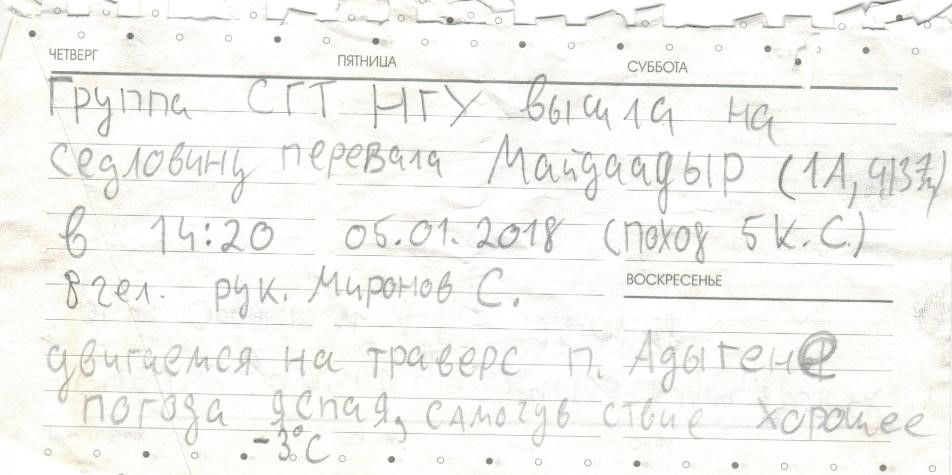 ЧЕТВЕРГ ПЯТНИЦА СУББОТА
Группа СГТ НГУ вышла на
седловину перевала Майдаадыр (1А, 4137)
в 14:20 05.01.2018 (поход 5 К.С.)
ВОСКРЕСЕНЬЕ
8 чел. рук. Миронов С.
двигаемся на траверс п. Адыгене
погода ясная, самочувствие хорошее
-3°С